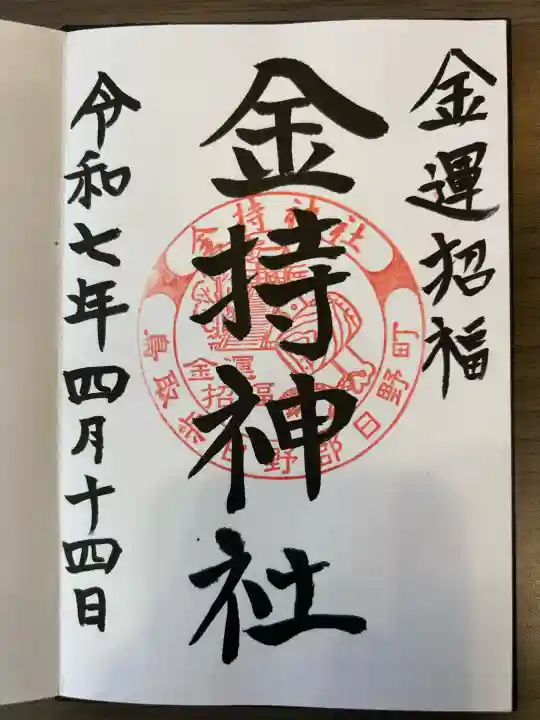 金運招福
金持神社
令和七年四月十四日
金持神社
鳥取県日野郡日野町
金運
招福